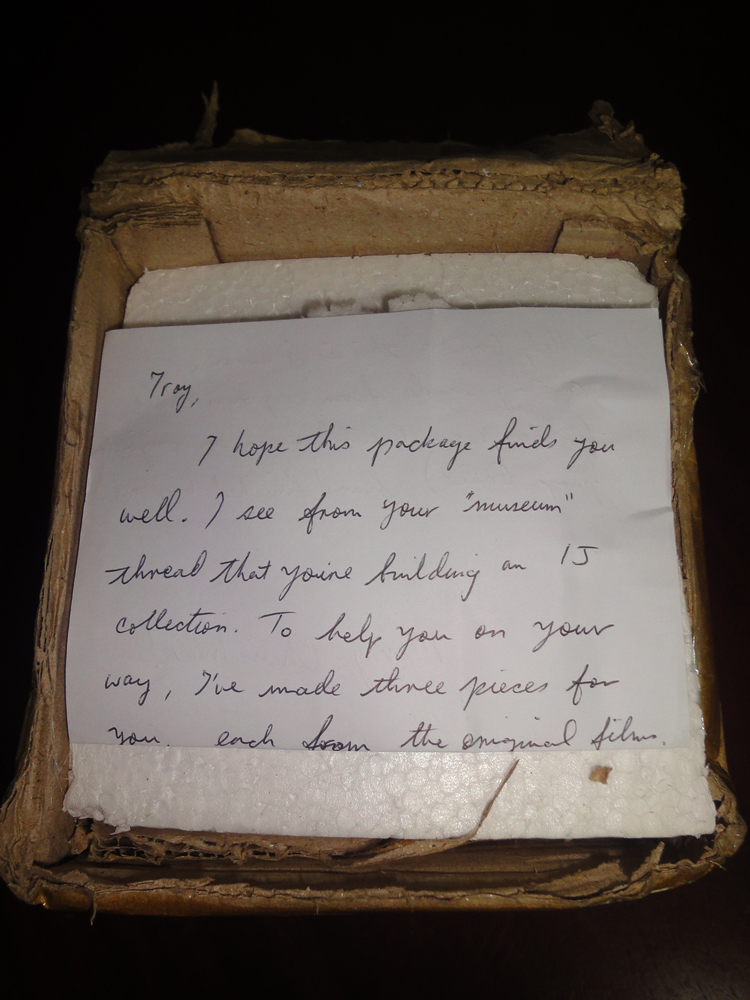 Troy,
I hope this package finds you
well. I see from your "museum"
thread that you're building an IJ
collection. To help you on your
way, I've made three pieces for
you. each from the original films.